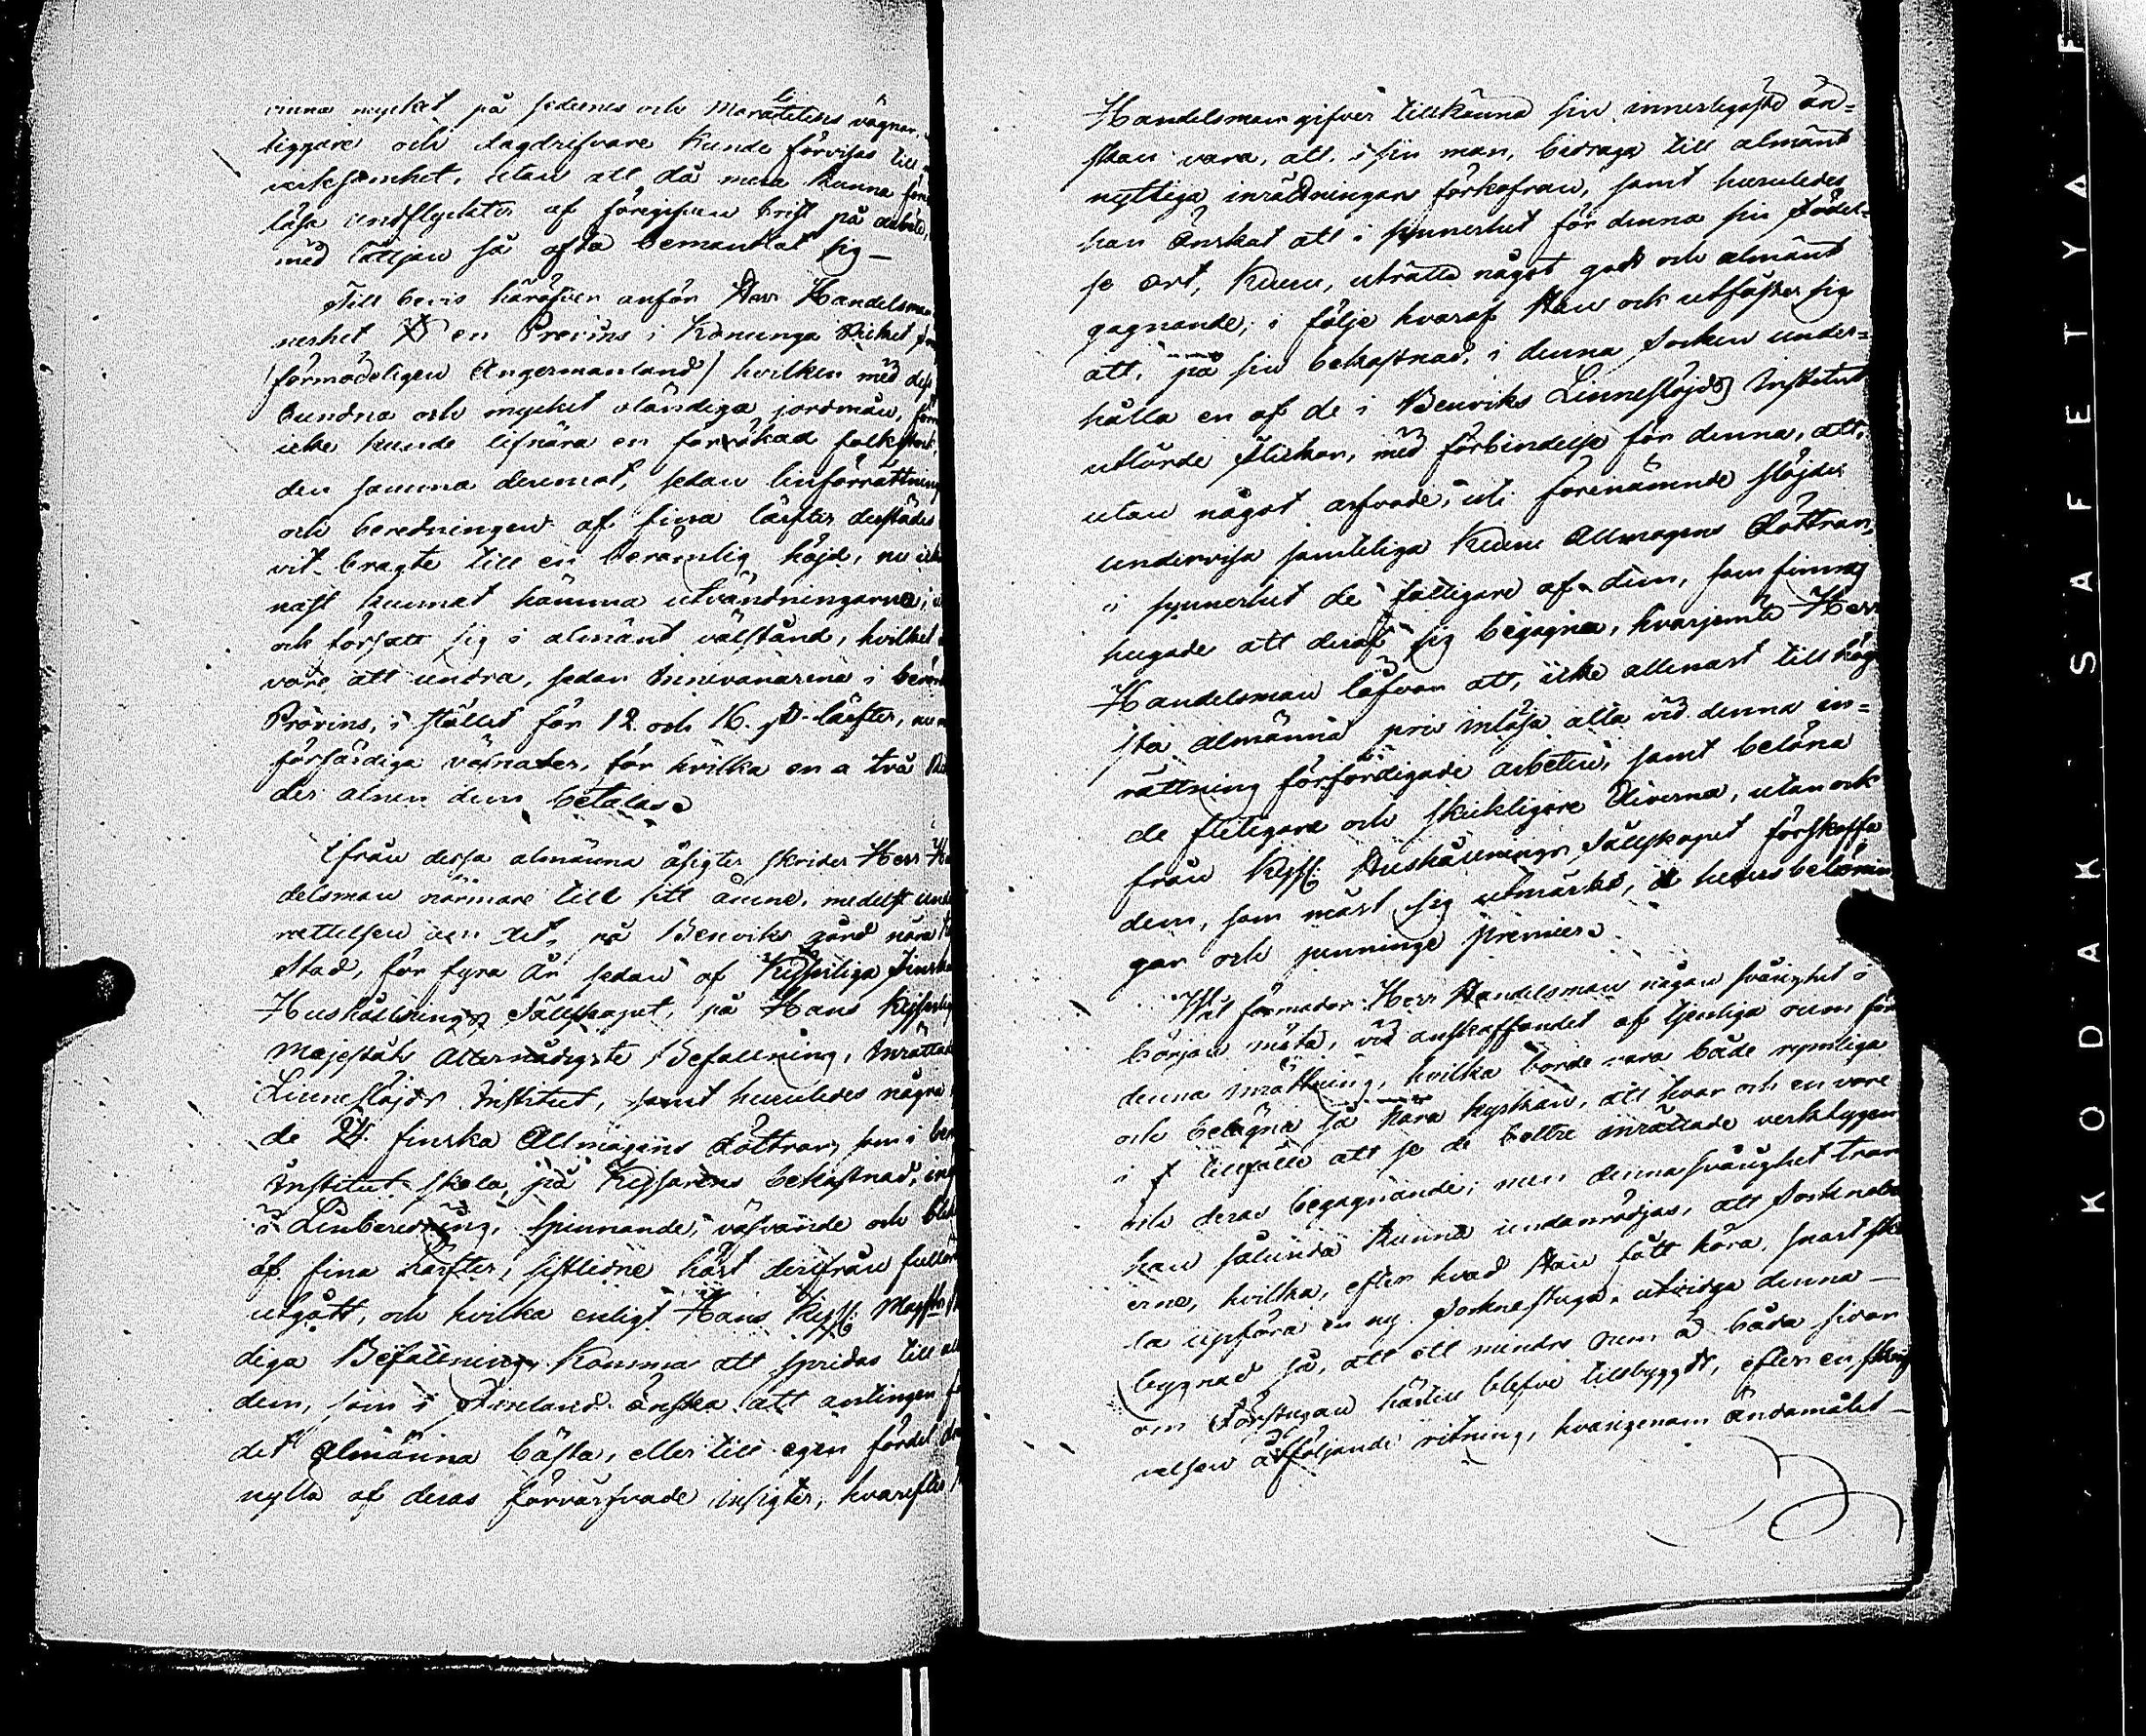 vinna mycket på sedernes och Moralitetens vägnar,
tiggare och dagdrifvare kunde förvisas till
verksamhet, utan att då mera kunna före
låsa undflygkter af föregifven brist på arbete,
med lättjan så ofta bemantlat sig —
Till bevis häröfver anför Herr Handelsman
nerhet en Provins i Konunga Riket
(förmodeligen Ångermanland) hvilken med dess
bundna och mycket oländiga jordmån, förr
icke kunde lifnära en förökad folkstock,
den samma deremot, sedan linförrättning
och beredningen af fina lärfter derstädes
vit bragte till en berömlig höjd, nu icke
nast kunnat hämma utvandringarna,
och försatt sig i almänt välstånd, hvilket
vore att undra, sedan Innevånarena i berörde
Provins, i stället för 12 och 16 s/d lärfter, nu
förfärdiga väfnader, för hvilka en a två Rik
der alnen dem betalas.
Ifrån dessa almänna åsigter skrider Herr Han
delsman närmare till sitt ämne, medelst under
rättelsen om det, på Benviks gård nära
Stad, för fyra År sedan af Kejserliga Finska
Hushållnings Sällskapet, på Hans Kejserlig
Majestäts Allernådigste Befallning, Inrättade
Linneslöjds Institut, samt huruledes några
de 24 finska Allmogens döttrar, som i ber
Institut skola, på Kejsarens bekostnad,
i Linberedning, spinnande, väfvande och blek
af fina lärfter, sistledne höst derifrån fullär
utgått, och hvilka enligt Hans Kejs. Maj:ts
diga Befallning komma att spridas till all
dem, som i Finland önska att antingen
det almänna bästa, eller till egen fördel
nytta af deras förvärfvade insigter, hvarefter
Handelsman gifver tillkänna sin innerligaste ön=
skan vara, att, i sin man, bidraga till almänt
nyttiga inrättningars förkofran, samt huruledes
han önskat att i synnerhet för denna sin Födel=
se ort, kunna uträtta något godt och almänt
gagnande; i följe hvaraf Han ock utfäster sig
att, på sin bekostnad, i denna Socken under=
hålla en af de i Benviks Linneslöjds Institut
utlärde flickor, med förbindelse för denna, att,
utan något arfvode, uti förenämnde slöjder
undervisa samteliga Allmogens Döttrar,
i synnerhet de fattigare af dem, som finnas
hugade att deraf sig begagna, hvarjemte Herr
Handelsman låfvar att, icke allenast till hög
sta almänna pris inlösa alla vid denna in=
rättning förfärdigade arbeten, samt belöna
de flitigare och skickligare Eleverna, utan ock
från Kejs. Hushållnings Sällskapet förskaffa
dem, som mäst sig utmärka, hedersbelönin
gar och penninge premier.
Väl förmodar Herr Handelsman någon svårighet i
början möta, vid anskaffandet af tjenliga rum för
denna inrättning, hvilka borde vara både rymliga
och belägna så nära kyrkan, att hvar och en vore
i tillfälle att se de bättre inrättade verktygen
och deras begagnande; men denna svårighet tror
han sålunda kunna undanrödjas, att Socknebo
erne, hvilka, efter hvad Han fått höra, snart sko
la upföra en ny Socknestuga, utvidga denna —
byggnad så, att ett mindre rum å båda sidor
om Förstugan härtill blefve tillbyggdt, efter en skrif
velsen åtföljande ritning, hvarigenom ändamålet —
KODAK · SAFETY A F